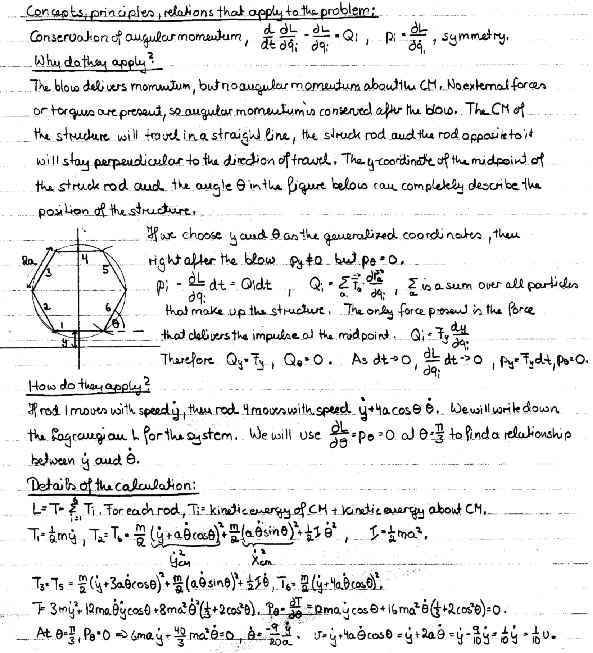 Concepts, principles, relations that apply to the problem:
Conservation of angular momentum, d/dt ∂L/∂q̇ᵢ - ∂L/∂qᵢ = Qᵢ, pᵢ = ∂L/∂q̇ᵢ, symmetry.
Why do they apply?
The blow delivers momentum, but no angular momentum about the CM. No external forces
or torques are present, so angular momentum is conserved after the blow. The CM of
the structure will travel in a straight line, the struck rod and the rod opposite to it
will stay perpendicular to the direction of travel. The y-coordinate of the midpoint of
the struck rod and the angle θ in the figure below can completely describe the
position of the structure.
If we choose y and θ as the generalized coordinates, then
right after the blow p_y ≠ 0 but p_θ = 0.
ṗᵢ - ∂L/∂qᵢ dt = Qᵢdt, Qᵢ = Σ_a F_a · ∂r_a/∂qᵢ, Σ_a is a sum over all particles
that make up the structure. The only force present is the force
that delivers the impulse at the midpoint. Qᵢ = F_y dy/dqᵢ
Therefore Q_y = F_y, Q_θ = 0. As dt→0, ∂L/∂qᵢ dt→0, p_y = F_y dt, p_θ = 0.
2a
1
2
3
4
5
6
θ
y
How do they apply?
If rod 1 moves with speed ẏ, then rod 4 moves with speed ẏ + 4a cosθ θ̇. We will write down
the Lagrangian L for the system. We will use ∂L/∂θ̇ = p_θ = 0 at θ = π/3 to find a relationship
between ẏ and θ̇.
Details of the calculation:
L = T = Σ Tᵢ. For each rod, Tᵢ = kinetic energy of CM + kinetic energy about CM.
T₁ = ½mẏ², T₂ = T₆ = m/2 (ẏ + aθ̇cosθ)² + m/2 (aθ̇sinθ)² + ½Iθ̇², I = ⅓ma².
ẏ²_CM ẋ²_CM
T₃ = T₅ = m/2 (ẏ + 3aθ̇cosθ)² + m/2 (aθ̇sinθ)² + ½Iθ̇, T₆ = m/2 (ẏ + 4aθ̇cosθ)².
T = 3mẏ² + 12maθ̇ẏcosθ + 8ma²θ̇²(⅓ + 2cos²θ). P_θ = ∂T/∂θ̇ = 12maẏcosθ + 16ma²θ̇(⅓ + 2cos²θ) = 0.
At θ = π/3, P_θ = 0 ⇒ 6maẏ + 40/3 ma²θ̇ = 0, θ̇ = -9/20 ẏ/a. v = ẏ + 4aθ̇cosθ = ẏ + 2aθ̇ = ẏ - 9/10 ẏ = 1/10 ẏ = 1/10 u.